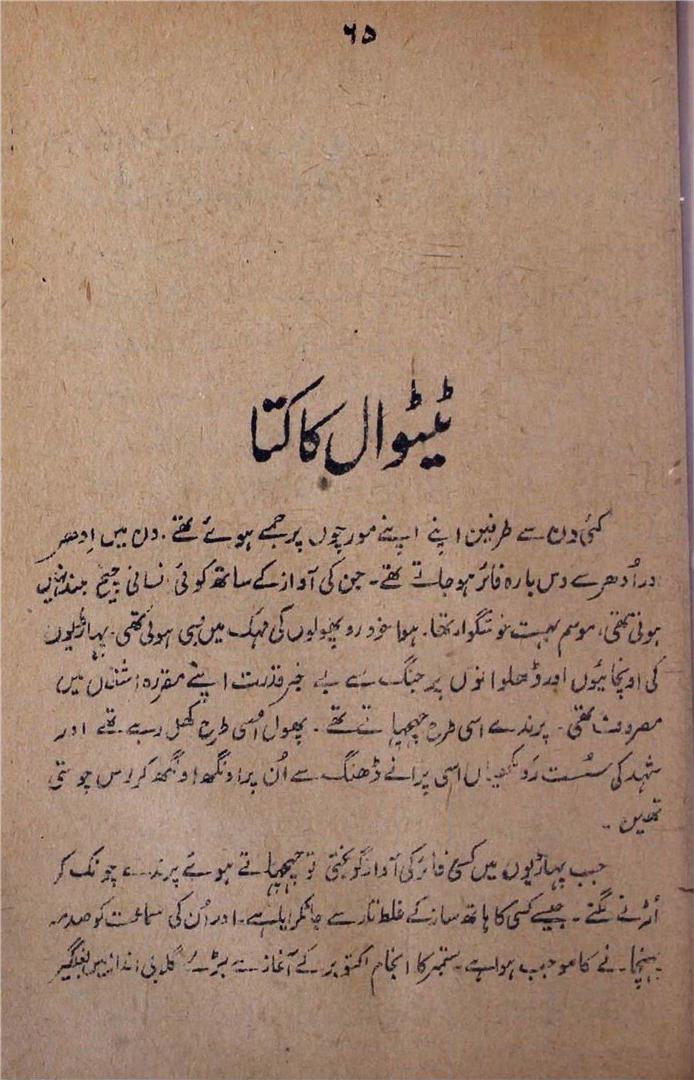 ۶۵
ٹیٹوال کا کتا
کئی دن سے طرفین اپنے اپنے مورچوں پر جمے ہوئے تھے۔ دن میں اِدھر
اور اُدھر سے دس بارہ فائر ہو جاتے تھے۔ جن کی آواز کے ساتھ کوئی انسانی چیخ بلند نہیں
ہوتی تھی، موسم بہت خوشگوار تھا۔ ہوا خود رو پھولوں کی مہک میں بسی ہوئی تھی۔ پہاڑیوں
کی اونچائیوں اور ڈھلوانوں پر جنگ سے بے خبر قدرت اپنے مقررہ اشغال میں
مصروف تھی۔ پرندے اسی طرح چہچہاتے تھے۔ پھول اُسی طرح کھل رہے تھے اور
شہد کی سُست رَو مکھیاں اسی پرانے ڈھنگ سے اُن پر اونگھ اونگھ کر رس چوستی
تھیں۔
جب پہاڑیوں میں کسی فائر کی آواز گونجتی تو چہچہاتے ہوئے پرندے چونک کر
اُڑنے لگتے۔ جیسے کسی کا ہاتھ ساز کے غلط تار سے جا ٹکرایا ہے۔ اور اُن کی سماعت کو صدمہ
پہنچانے کا موجب ہوا ہے۔ ستمبر کا انجام اکتوبر کے آغاز سے بڑے گلابی انداز میں بغلگیر